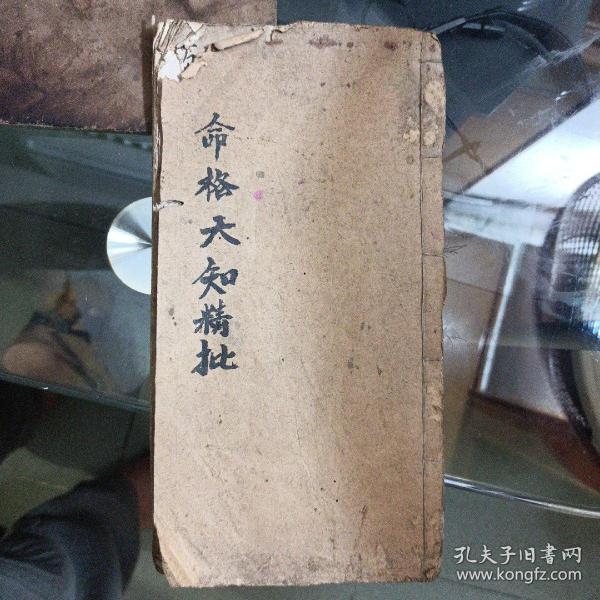 命格天知精批
孔夫子旧書网
www.kongfz.com